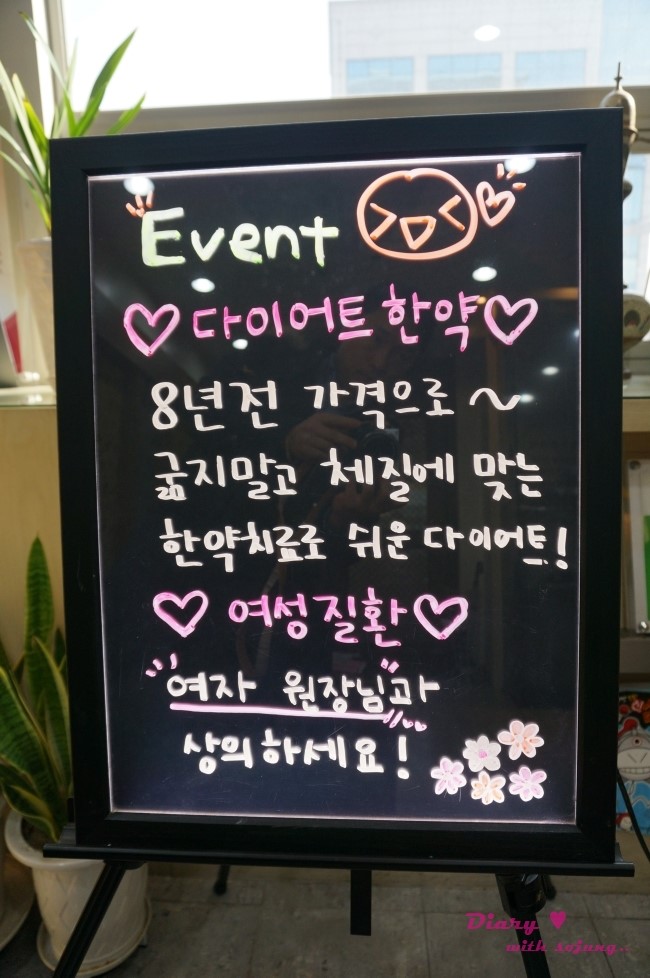 Event
다이어트 한약
8년전 가격으로 ~
굶지말고 체질에 맞는
한약치료로 쉬운 다이어트!
여성질환
여자 원장님과
상의하세요!
Diary ♥
with sojung..